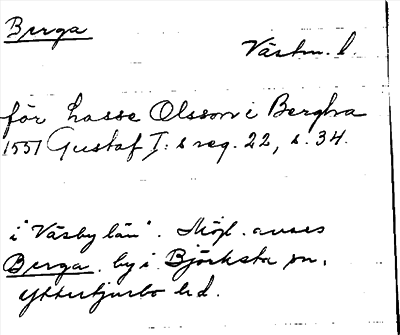 Berga
Västm. l.
för Lasse Olsson i Bergha
1551 Gustaf I:s reg. 22, s. 34.
i "Väsby län". Möjl. avses
Berga, by i Björksta sn,
Yttertjurbo hd.